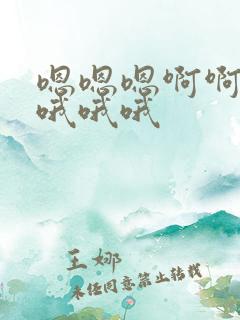 嗯嗯嗯啊啊
哦哦哦
王娜
未经同意禁止转载